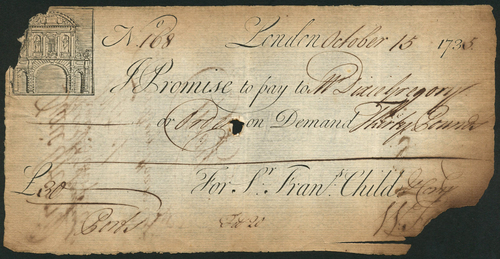 No. 168 London October 15 1735
I Promise to pay to Mr Gregory
or Order on Demand Thirty Pounds
£30 For Sr. Frans. Child